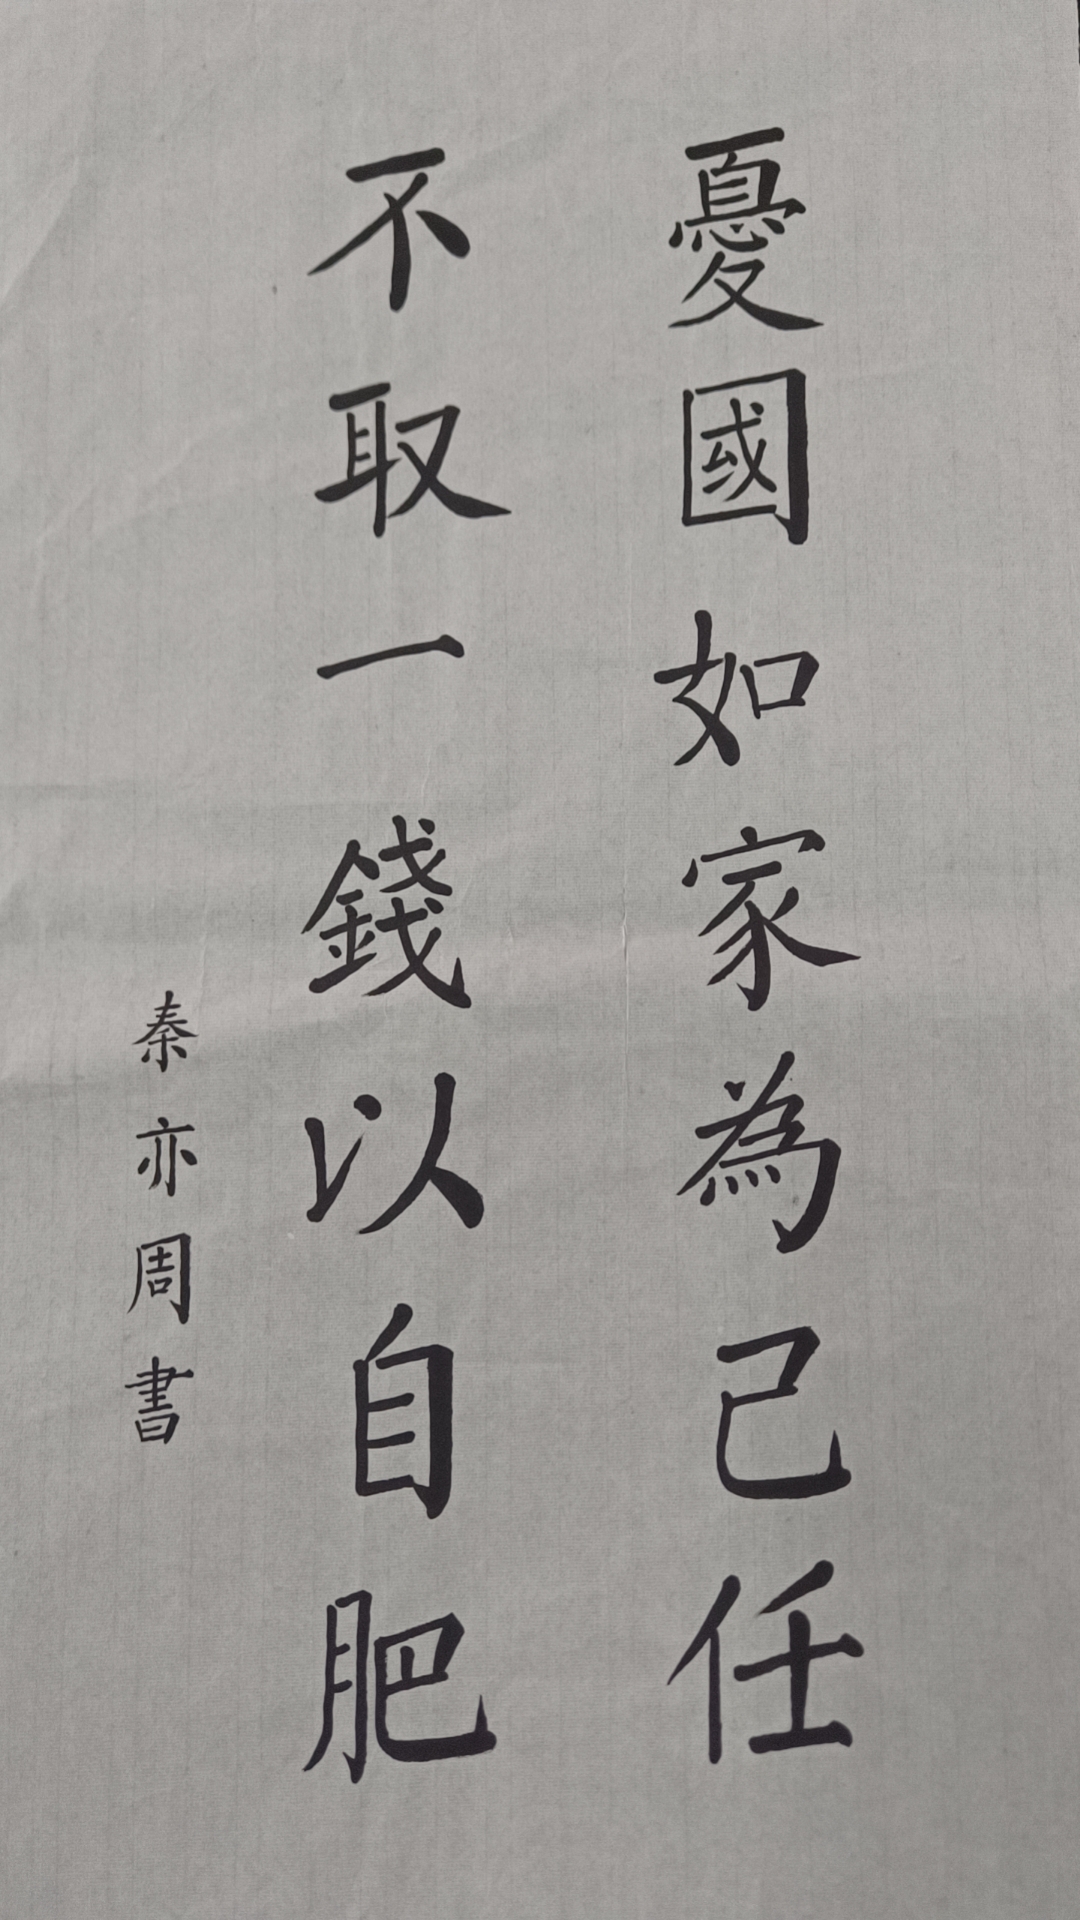 憂國如家為己任
不取一錢以自肥
秦亦周書